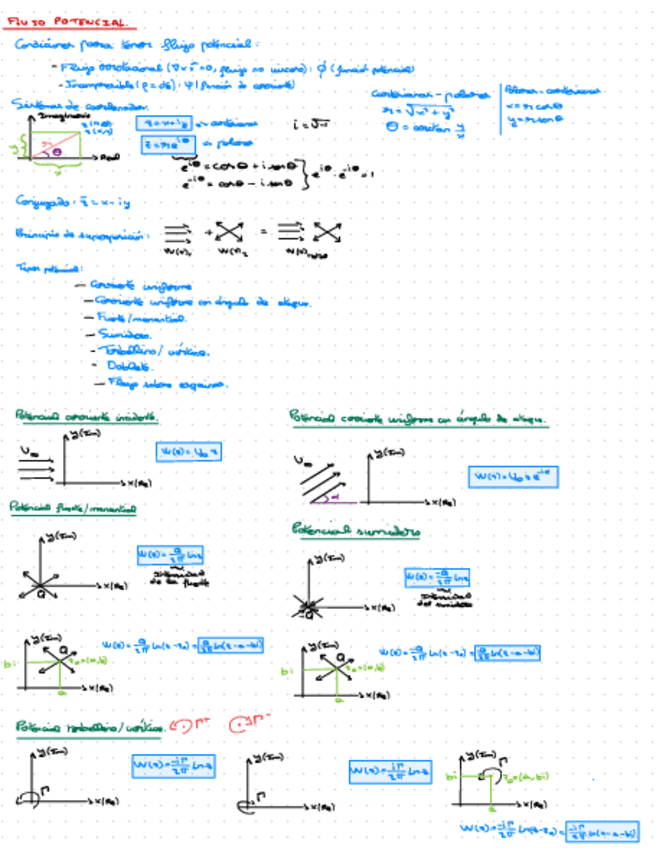 FLUJO POTENCIAL.
Condiciones para tener flujo potencial:
- Flujo irrotacional (∇×v̄=0, flujo no viscoso): ϕ (función potencial)
- Incompresible (ρ=cte): Ψ (función de corriente)
Sistemas de coordenadas:
Imaginario
Real
y
x
θ
z = x+iy → cartesianas
z = re^iθ → polares
i = √-1
Cartesianas - polares
r = √x²+y²
θ = arctan y/x
Polares - cartesianas
x = r cosθ
y = r senθ
e^iθ = cosθ + i senθ
e^-iθ = cosθ - i senθ
e^iθ · e^-iθ = 1
Conjugado: z̄ = x - iy
Principio de superposición: + =
W(z)₁ W(z)₂ W(z)
Tipos potencial:
- Corriente uniforme
- Corriente uniforme con ángulo de ataque.
- Fuente/manantial.
- Sumidero.
- Torbellino/vórtice.
- Doblete.
- Flujo sobre esquina.
Potencial corriente incidente.
U∞
y(Im)
x(Re)
W(z) = U∞ z
Potencial corriente uniforme con ángulo de ataque.
U∞
α
y(Im)
x(Re)
W(z) = U∞ z e^-iα
Potencial fuente/manantial
y(Im)
Q
x(Re)
W(z) = Q/2π ln z
Intensidad
de la fuente
Potencial sumidero
y(Im)
-Q
x(Re)
W(z) = -Q/2π ln z
Intensidad
del sumidero
y(Im)
Q
bi
z₀=(a,b)
a
x(Re)
W(z) = Q/2π ln(z-z₀) = Q/2π ln(z-a-bi)
y(Im)
Q
bi
z₀=(a,b)
a
x(Re)
W(z) = -Q/2π ln(z-z₀) = -Q/2π ln(z-a-bi)
Potencial torbellino/vórtice. Γ+ Γ-
y(Im)
Γ
x(Re)
W(z) = -iΓ/2π ln z
y(Im)
Γ
x(Re)
W(z) = iΓ/2π ln z
y(Im)
Γ
bi
z₀=(a,bi)
a
x(Re)
W(z) = -iΓ/2π ln(z-z₀) = -iΓ/2π ln(z-a-bi)